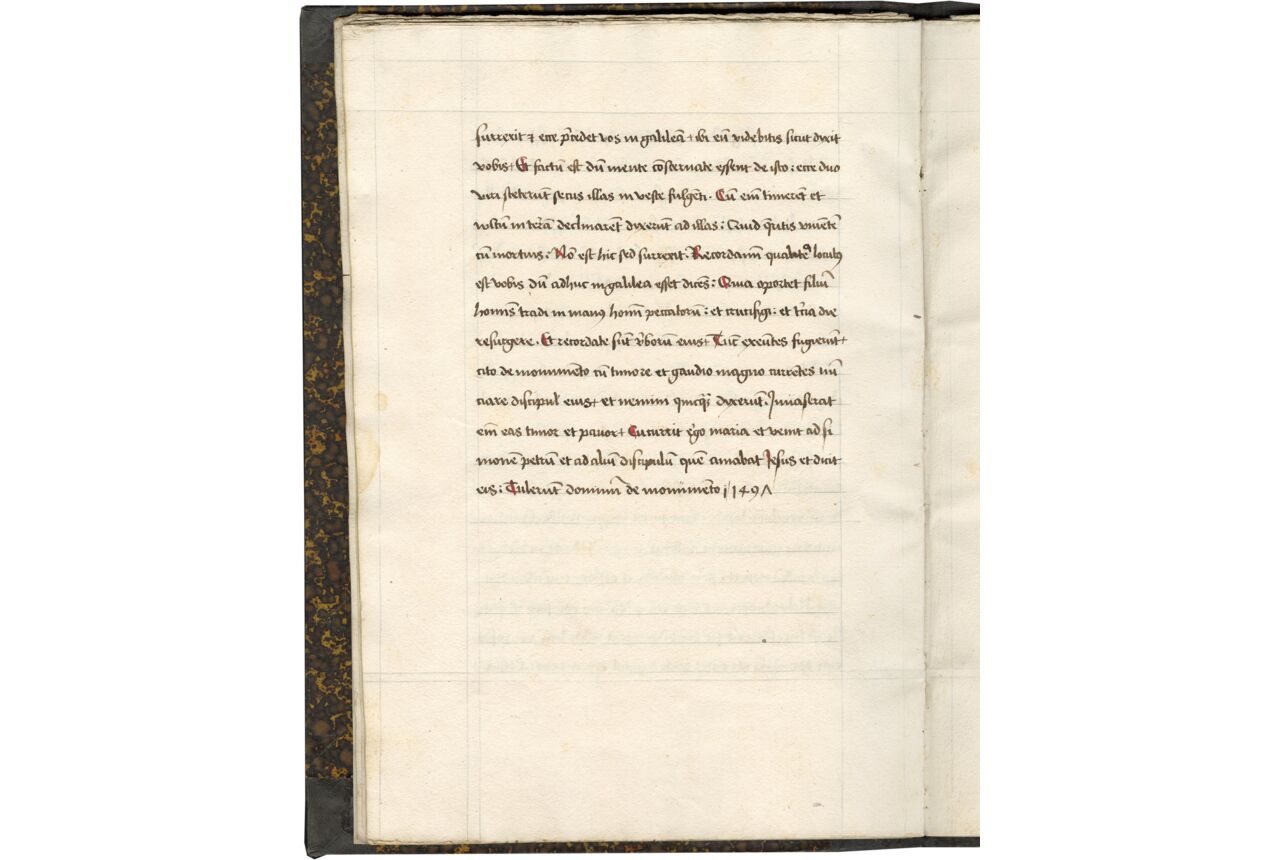 surrexit ⁊ ecce p̄cedet vos in galileā + ibi eū videbitis sicut dixit
vobis + Et factū est dū mente cōsternate essent de isto : ecce duo
viri steterūt secus illas in veste fulgēti . Cū em̄ timerēt et
vultū in terā declinarēt dixerūt ad illas : Quid q̄ritis viuētē
cū mortuis : Nō est hic sed surrexit . Recordamī qualitꝰ locutꝰ
est vobis dū adhuc in galilea esset dicēs : Quia oportet filiū
homīs tradi in manꝰ homī peccatorū : et crucifigi : et t̄cia die
resurgere . Et recordate sūt v̄borū eius + Tūc exeūtes fugierūt +
cito de monumēto cū timore et gaudio magno currētes nū
ciare discipul eius + et nemini quicq̄ dixerūt . Inuaserat
em̄ eas timor et pauor + Cucurrit ergo maria et venit ad si
monē petrū et ad aliū discipulū quē amabat Jesus et dicit
eis : Tulerūt dominū de monumēto 1491